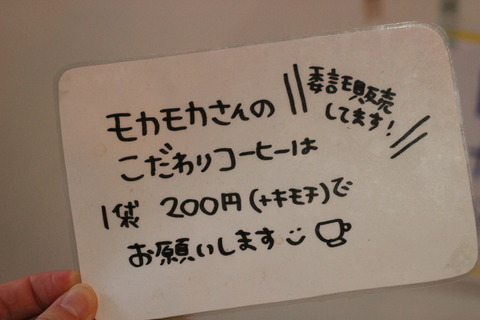 委託販売
してます!
モカモカさんの
こだわりコーヒーは
1袋 200円(+キモチ)で
お願いします